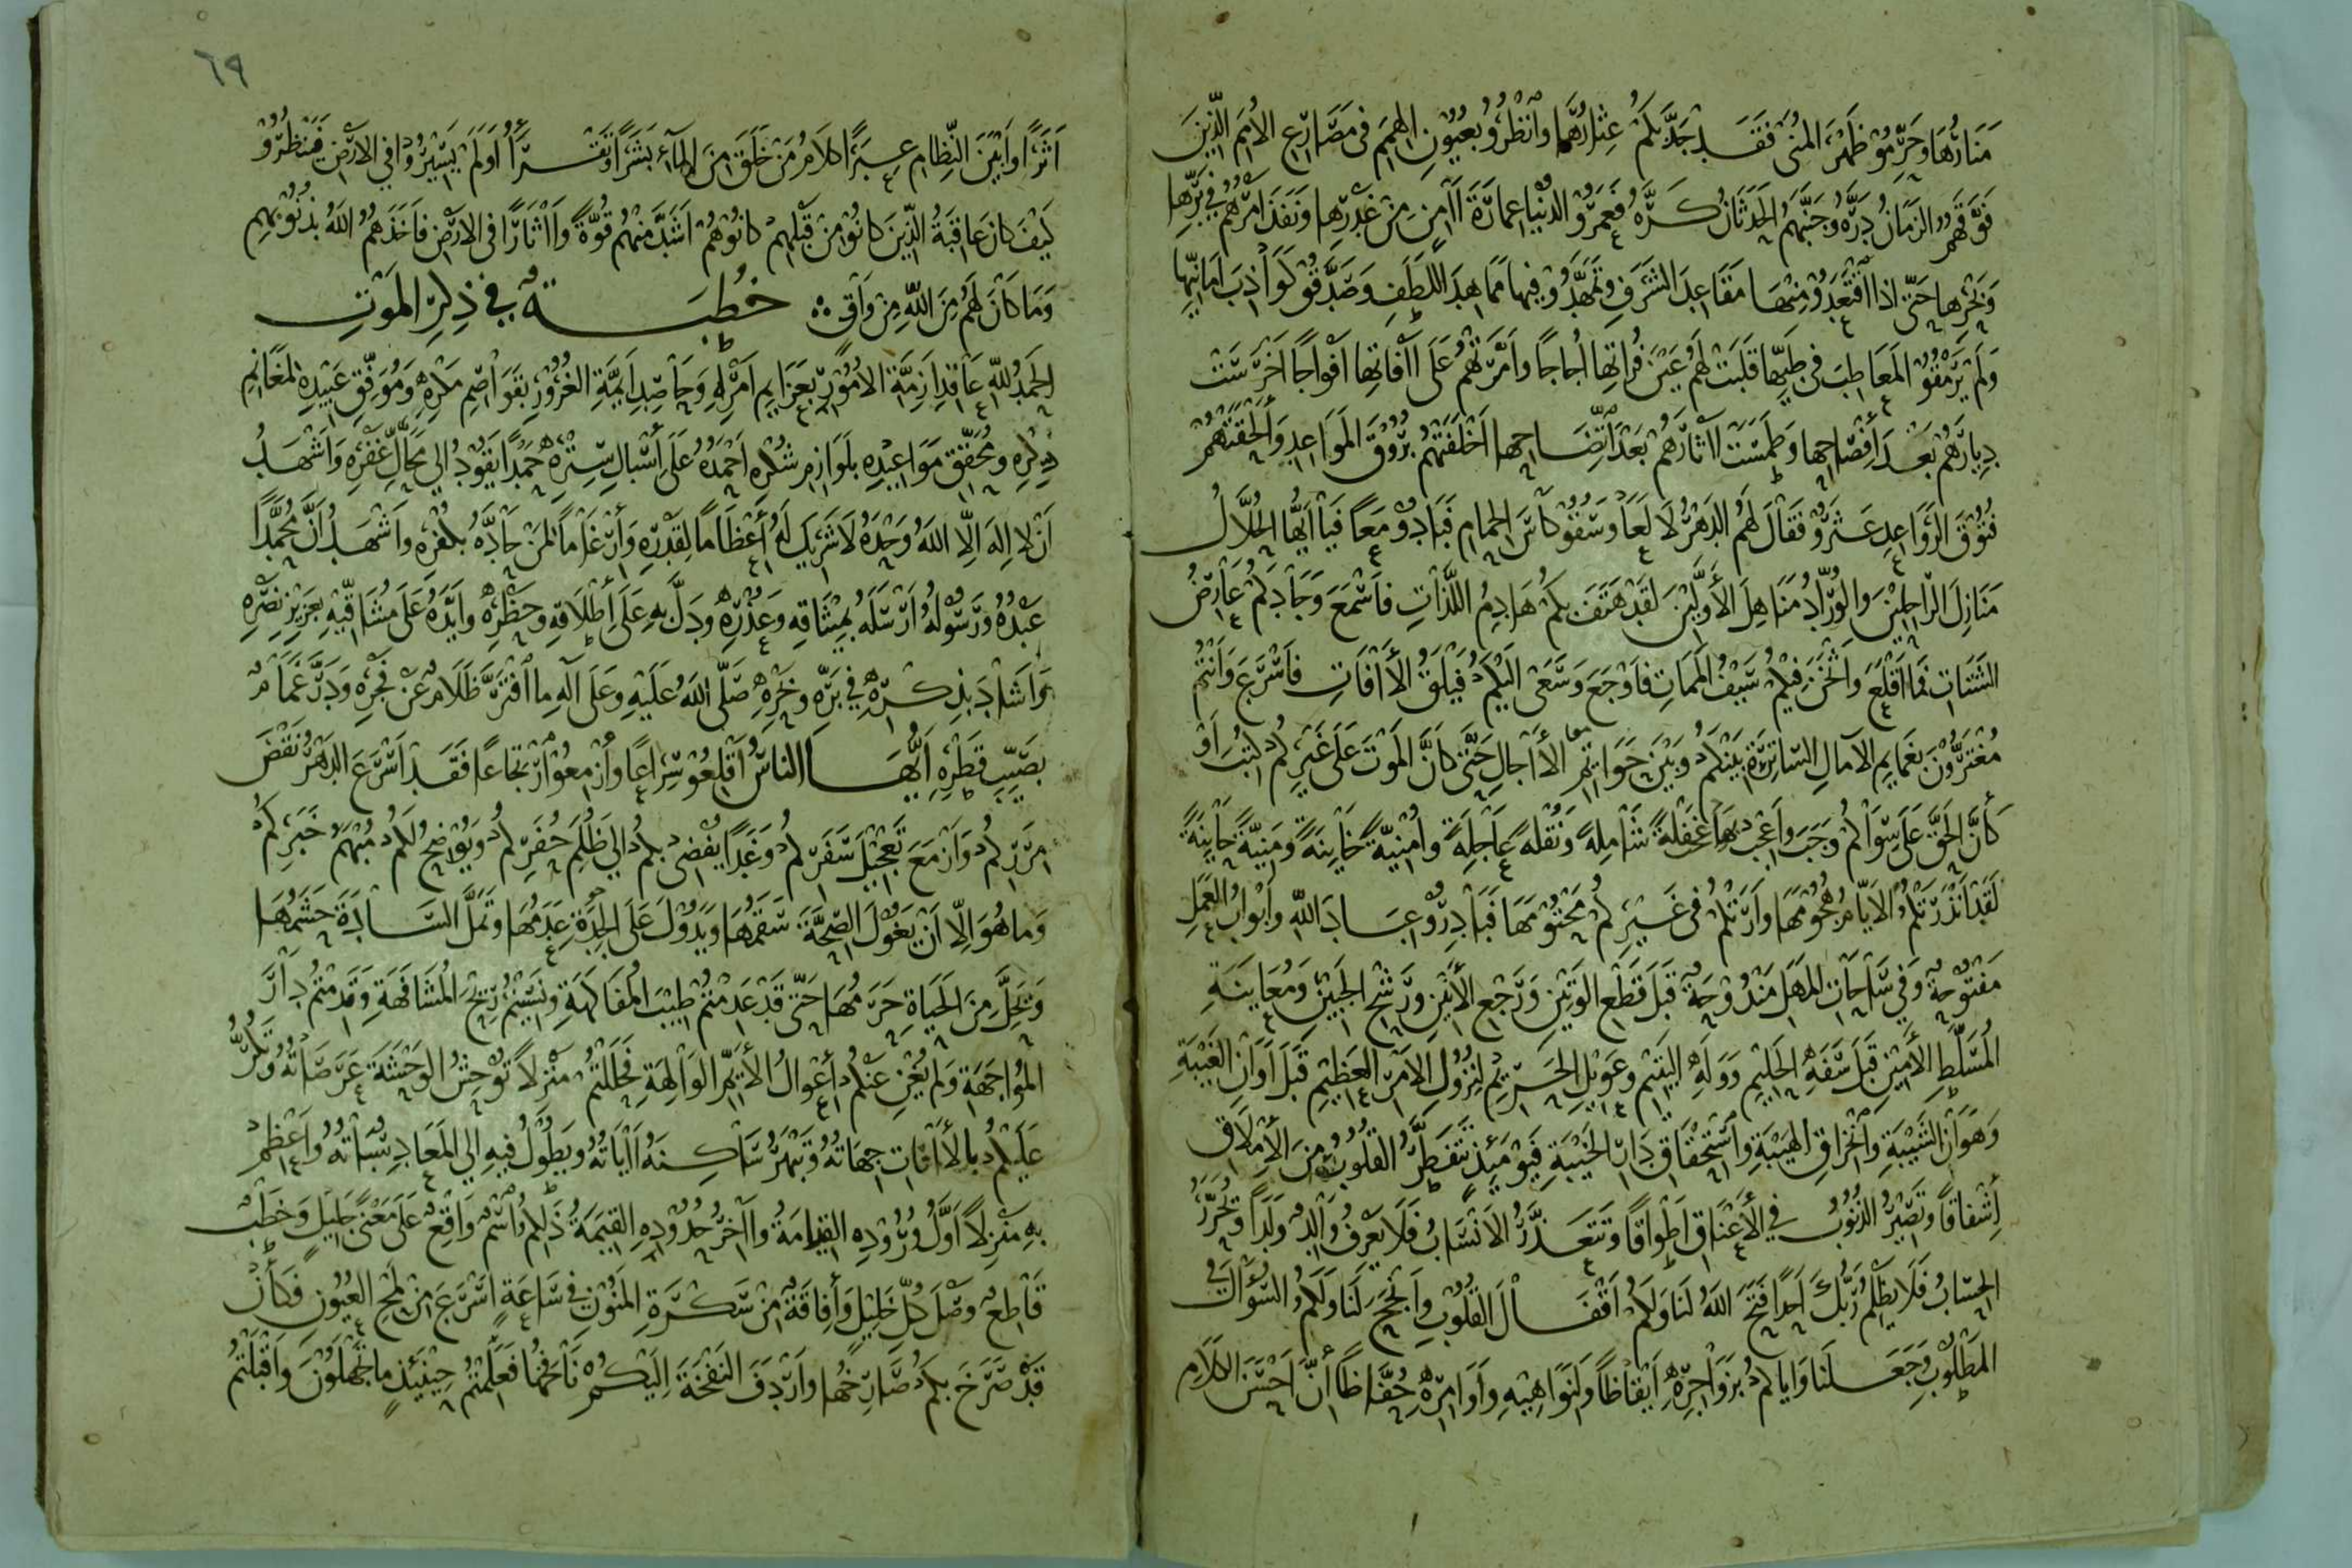 مَنَارُهَا وَحَرِّمُوْ ظَهْرَ المُنَى فَقَدْ جَدَّ بِكُمْ عِثَارُهَا وَانْظُرُوْ بِعُيُوْنِ الهِمَمِ فِى مَصَارِعِ الأُمَمِ الَّذِيْنَ
فَوَّقَهُمُ الزَمَانُ دِرَّهُ وَجَنَّبَهُمُ الحَدَثَانُ كَرَّهُ فَعَمَرُوْ الدُنْيَا عِمَارَةَ آمِنٍ مِنْ غَدْرِهَا وَنَفَذَ أَمْرُهُمْ فِيْ بَرِّهَا
وَبَحْرِهَا حَتَّى اِذَا اقْتَعَدُوْ مِنْهَا مَقَاعِدَ الشَرَفِ وَتَمَهَّدُوْ فِيهَا مَمَاهِدَ اللَطَفِ وَصَدَّقُوْ كَوَاذِبَ اَمَانِيِّهَا
وَلَمْ يَرْمُقُوْ المَعَاطِبَ فِى طَيِّهَا قَلَبَتْ لَهُمْ عَيْنَ فُرَاتِهَا أُجَاجًا وَأَمَرَّتْهُمْ عَلَى آفَاتِهَا اَفْوَاجًا اَخْرَسَتْ
دِيَارَهُمْ بَعْدَ اَفِصَاحِهَا وَطَمَسَتْ آثَارَهُمْ بَعْدَ اتِّضَاحِهَا اَخْلَفَتْهُمْ بُرُوْقَ المَوَاعِدِ وَاَلْحَقَتْهُمْ
فُتُوْقَ الرَوَاعِدِ عَثَرُوْ فَقَالَ لَهُمُ الدَهْرُ لَا لَعًا وَسُقُوْ كَاْسَ الحِمَامِ فَبَادُوْ مَعًا فَيَا اَيُّهَا الحُلَّالُ
مَنَازِلَ الرَّاحِلِيْنَ وَالوُرَّادُ مَنَاهِلَ الأَوَّلِيْنَ لَقَدْ هَتَفَ بِكُمْ هَادِمُ اللَّذَّاتِ فَاَسْمَعَ وَجَادَكُمْ عَارِضُ
الشَتَاتِ فَمَا اَقْلَعَ وَاَثْخَنَ فِيْكُمْ سَيْفُ المَمَاتِ فَاَوْجَعَ وَسَعَى اِلَيْكُمْ فَيْلَقُ الأَافَاتِ فَاَسْرَعَ وَاَنْتُمْ
مُغْتَرُّوْنَ بِغَمَايِمِ الآمَالِ السَاتِرَةِ بَيْنَكُمْ وَبَيْنَ خَوَاتِمِ الأَاجَالِ حَتَّى كَاَنَّ المَوْتَ عَلَى غَيْرِكُمْ كُتِبَ اَوْ
كَأَنَّ الحَقَّ عَلَى سِوَاكُمْ وَجَبَ وَاَعْجِبْ بِهَا غَفْلَةً شَامِلَةً وَنُقْلَةً عَاجِلَةً وَاُمْنِيَّةً خَايِنَةً وَمَنِيَّةً حَايِنَةً
لَقَدْ اَنْذَرَتْكُمْ الاَيَّامُ هُجُوْمَهَا وَاَرَتْكُمْ فِى غَيْرِكُمْ مَحْتُوْمَهَا فَبَادِرُوْا عِبَادَ اللهِ وَاَبْوَابُ العَمَلِ
مَفْتُوْحَةٌ وَفِيْ سَاحَاتِ المَهَلِ مَنْدُوْحَةٌ قَبْلَ قَطْعِ الوَتِيْنِ وَرَجْعِ الأَنِيْنِ وَرَشْحِ الجَبِيْنِ وَمُعَايَنَةِ
المُسَلَّطِ الأَمِيْنِ قَبْلَ سَفَهِ الحَلِيْمِ وَوَلَهِ اليَتِيْمِ وَعَوِيْلِ الحَرِيْمِ لِنُزُوْلِ الاَمْرِ العَظِيْمِ قَبْلَ اَوَانِ الغَيْبَةِ
وَهَوَانِ الشَيْبَةِ وَانْخِرَاقِ الهَيْبَةِ وَاسْتِحْقَاقِ دَارِ الخَيْبَةِ فَيَوْمَئِذٍ تَتَفَطَّرُ القُلُوْبُ مِنَ الأَمْلَاقِ
إِشْفَاقًا وَتَصِيْرُ الذُنُوْبُ فِي الأَعْنَاقِ اَطْوَاقًا وَتَتَعَذَّرُ الاَنْسَابُ فَلَا يَعْرِفُ وَالِدٌ وَلَدًا وَيُحَرَّرُ
الحِسَابُ فَلَا يَظْلِمُ رَبُّكَ اَحَدًا فَتَحَ اللهُ لَنَا وَلَكُمْ اَقْفَالَ القُلُوْبِ وَاَنْجَحَ لَنَا وَلَكُمُ السُؤَالَ فِي
المَطْلُوْبِ وَجَعَلَنَا وَاِيَاكُمْ بِزَوَاجِرِهِ اَيْقَاظًا وَلِنَوَاهِيْهِ وَاَوَامِرِهِ حُفَّاظًا اَنَّ اَحْسَنَ الكَلَامِ
٦٩
اَثَرًا وَاَبْيَنَ النِّظَامِ عِبَرًا كَلَامُ مَنْ خَلَقَ مِنَ المَآءِ بَشَرًا وَتَقْرَأُ اَوَلَمْ يَسِيْرُوْا فِي الاَرْضِ فَيَنْظُرُوْ
كَيْفَ كَانَ عَاقِبَةُ الَّذِيْنَ كَانُوْا مِنْ قَبْلِهِمْ كَانُوْ هُمْ اَشَدَّ مِنْهُمْ قُوَّةً وَاٰثَارًا فِى الاَرْضِ فَاَخَذَهُمُ اللهُ بِذُنُوْبِهِمْ
وَمَا كَانَ لَهُمْ مِنَ اللهِ مِنْ وَاقٍ خُطْبَةٌ فِيْ ذِكِرِ المَوْتِ
الحَمْدُ للهِ عَاقِدِ اَزِمَّةِ الاُمُوْرِ بِعَزَايِمِ اَمْرِهِ وَحَاصِدِ اَيِمَّةِ الغُرُوْرِ بِقَوَاصِمِ مَكْرِهِ وَمُوَفِّقِ عَبِيْدِهِ لِمَغَانِمِ
ذِكْرِهِ وَمُحَقِّقِ مَوَاعِيْدِهِ بِلَوَازِمِ شُكْرِهِ اَحْمَدُهُ عَلَى اَسْبَالِ سِتْرِهِ حَمْدًا يَقُوْدُ اِلَى مَحَالِّ غَفْرِهِ وَاَشْهَدُ
اَنْ لَا اِلَهَ اِلَّا اللهُ وَحْدَهُ لَا شَرِيْكَ لَهُ أَعْظَامًا لِقَدْرِهِ وَأَرْغَامًا لِمَنْ حَادَّهُ بِكُفْرِهِ وَاَشْهَدُ اَنَّ مُحَمَّدًا
عَبْدُهُ وَرَسُوْلُهُ اَرْسَلَهُ بِمِيْثَاقِهِ وَعُذْرِهِ وَدَلَّ بِهِ عَلَى اِطْلَاقِهِ وَحَظْرِهِ وَاَيَّدَهُ عَلَى مُشَاقِّيْهِ بِعَزِيْزِ نَصْرِهِ
وَاَشَادَ بِذِكْرِهِ فِيْ بَرِّهِ وَبَحْرِهِ صَلَّى اللهُ عَلَيْهِ وَعَلَى آلِهِ مَا افْتَرَّ ظَلَامٌ عَنْ فَجْرِهِ وَدَرَّ غَمَامٌ
بِصَيِّبِ قَطْرِهِ اَيُّهَا النَاسُ اَقْلِعُوْ سِرَاعًا وَاَزْمِعُوْ ارْتِجَاعًا فَقَدْ اَسْرَعَ الدَهْرُ نَقْضَ
مِرَرِكُمْ وَاَزْمَعَ تَعْجِيْلَ سَفَرِكُمْ وَغَدًا يُفْضِى بِكُمْ اِلَى ظُلَمِ حُفَرِكُمْ وَيُوْضِحُ لَكُمْ مُبْهَمَ خَبَرِكُمْ
وَمَا هُوَ اِلَّا اَنْ يَغُوْلَ الصِّحَّةَ سَقَمُهَا وَيَدُوْلَ عَلَى الجِدَّةِ عَدَمُهَا وَتَمَلَّ السَادَةَ حَشَمُهَا
وَيَخِلَّ مِنَ الحَيَاةِ حَرَمُهَا حَتَّى قَدْ عَدِمْتُمْ طِيْبَ المُفَاكَهَةِ وَنَسِيْتُمْ رِيْحَ المُشَافَهَةِ وَقَدِمْتُمْ دَارَ
المُوَاجَهَةِ وَلَمْ يُغْنِ عَنْكُمْ أَعْوَالُ الأَيِّمِ الوَالِهَةِ فَحَلَلْتُمْ مَنْزِلًا تُوْحِشُ الوَحْشَةَ عَرَصَاتُهُ وَتَكُرُّ
عَلَيْكُمْ بِالأَافَاتِ جِهَاتُهُ وَتَبْهَرُ سَاكِنَهُ اٰيَاتُهُ وَيَطُوْلُ فِيْهِ اِلَى المَعَادِ سُبَاتُهُ وَاَعْظِمْ
بِهِ مَنْزِلًا اَوَّلُ وُرُوْدِهِ النَدَامَةُ وَاٰخِرُ حُدُوْدِهِ القِيٰمَةُ ذَلِكُمْ اسْمٌ وَاقِعٌ عَلَى مَعْنًى جَلِيْلٍ وَخَطْبٌ
قَاطِعٌ وَصْلَ كُلِّ خَلِيْلٍ وَأَفَاقَةٌ مِنْ سَكْرَةِ المَنُوْنِ فِى سَاعَةٍ اَسْرَعَ مِنْ لَمْحِ العُيُوْنِ فَكَأَنْ
قَدْ صَرَخَ بِكُمْ صَارِخُهَا وَاَرْدَفَ النَفْخَةَ اِلَيْكُمْ نَافِخُهَا فَعَلِمْتُمْ حِيْنَئِذٍ مَا تَجْهَلُوْنَ وَاَقْبَلْتُمْ